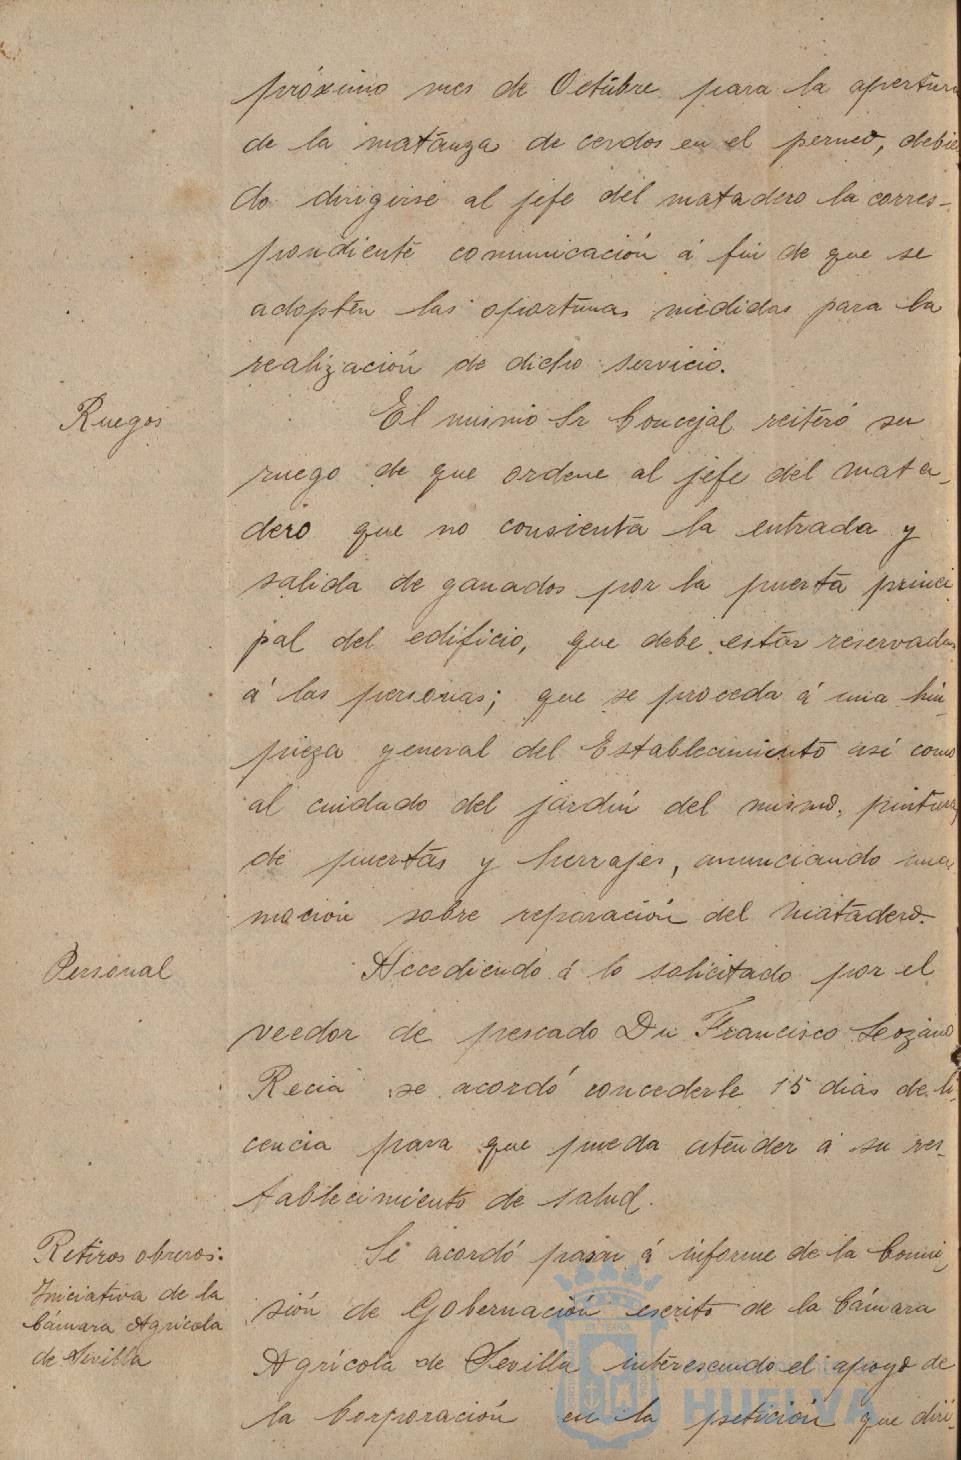 próximo mes de Octubre para la apertura
de la matanza de cerdos en el perneo, debien
do dirigirse al jefe del matadero la corres-
pondiente comunicación á fin de que se
adopten las oportunas medidas para la
realización de dicho servicio.
Ruegos
El mismo Sr Concejal reiteró su
ruego de que ordene al jefe del mata-
dero que no consienta la entrada y
salida de ganados por la puerta princi
pal del edificio, que debe estar reservada
á las personas; que se proceda á una lim-
pieza general del Establecimiento así como
al cuidado del jardín del mismo, pintura
de puertas y herrajes, anunciando una
moción sobre reparación del Matadero.
Personal
Accediendo á lo solicitado por el
veedor de pescado Dn Francisco Lozano
Recia se acordó concederle 15 dias de li-
cencia para que pueda atender á su res-
tablecimiento de salud.
Retiros obreros:
Iniciativa de la
Cámara Agrícola
de Sevilla
Se acordó pasar á informe de la Comi-
sión de Gobernación escrito de la Cámara
Agrícola de Sevilla interesando el apoyo de
la Corporación en la petición que diri-
HUELVA